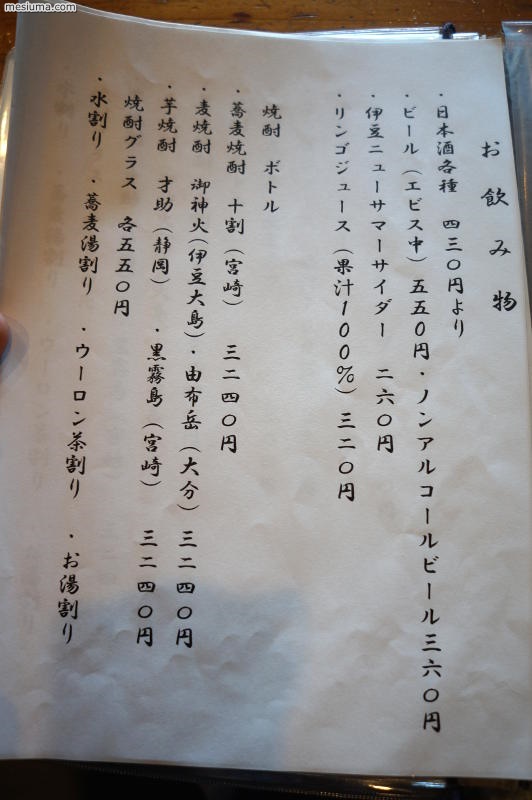 mesiuma.com
お飲み物
・日本酒各種 四三〇円より
・ビール（エビス中）五五〇円・ノンアルコールビール三六〇円
・伊豆ニューサマーサイダー 二六〇円
・リンゴジュース（果汁100%）三二〇円
焼酎 ボトル
・蕎麦焼酎 十割（宮崎） 三二四〇円
・麦焼酎 御神火（伊豆大島）・由布岳（大分）三二四〇円
・芋焼酎 才助（静岡）・黒霧島（宮崎） 三二四〇円
焼酎グラス 各五五〇円
・水割り ・蕎麦湯割り ・ウーロン茶割り ・お湯割り